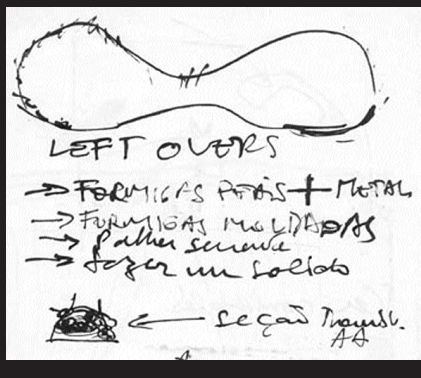 LEFT OVERS
→ FORMIGAS REAIS + METAL
→ FORMIGAS MOLDADAS
→ semente
→ fazer um solido
← seção Transv.
AA